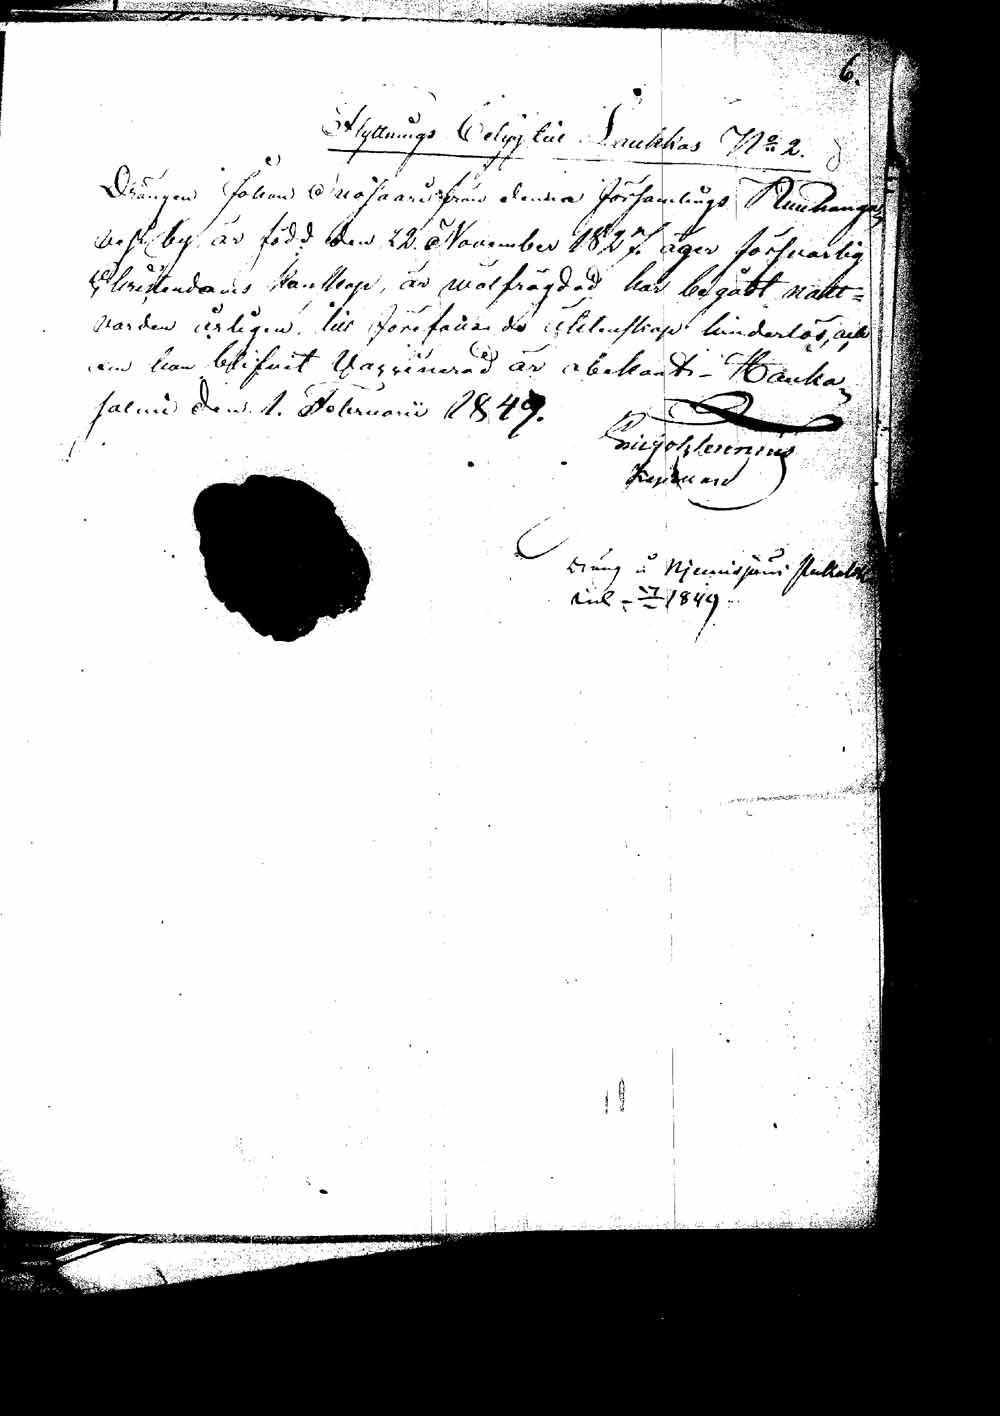 6.
Flyttnings Betyg till Laukkas No 2.
Drängen Johan från denna församlings
by är född den 22 November 1827. äger försvarlig
Christendoms kunskap, är wälfrägdad har begått natt=
varden årligen, till förefallande äktenskap hinderlös, och
om han blifvit Vaxinerad är obekant. Hanka
salmi den 1. Februarii 1849.
Dräng å Njemisjärvi
1849